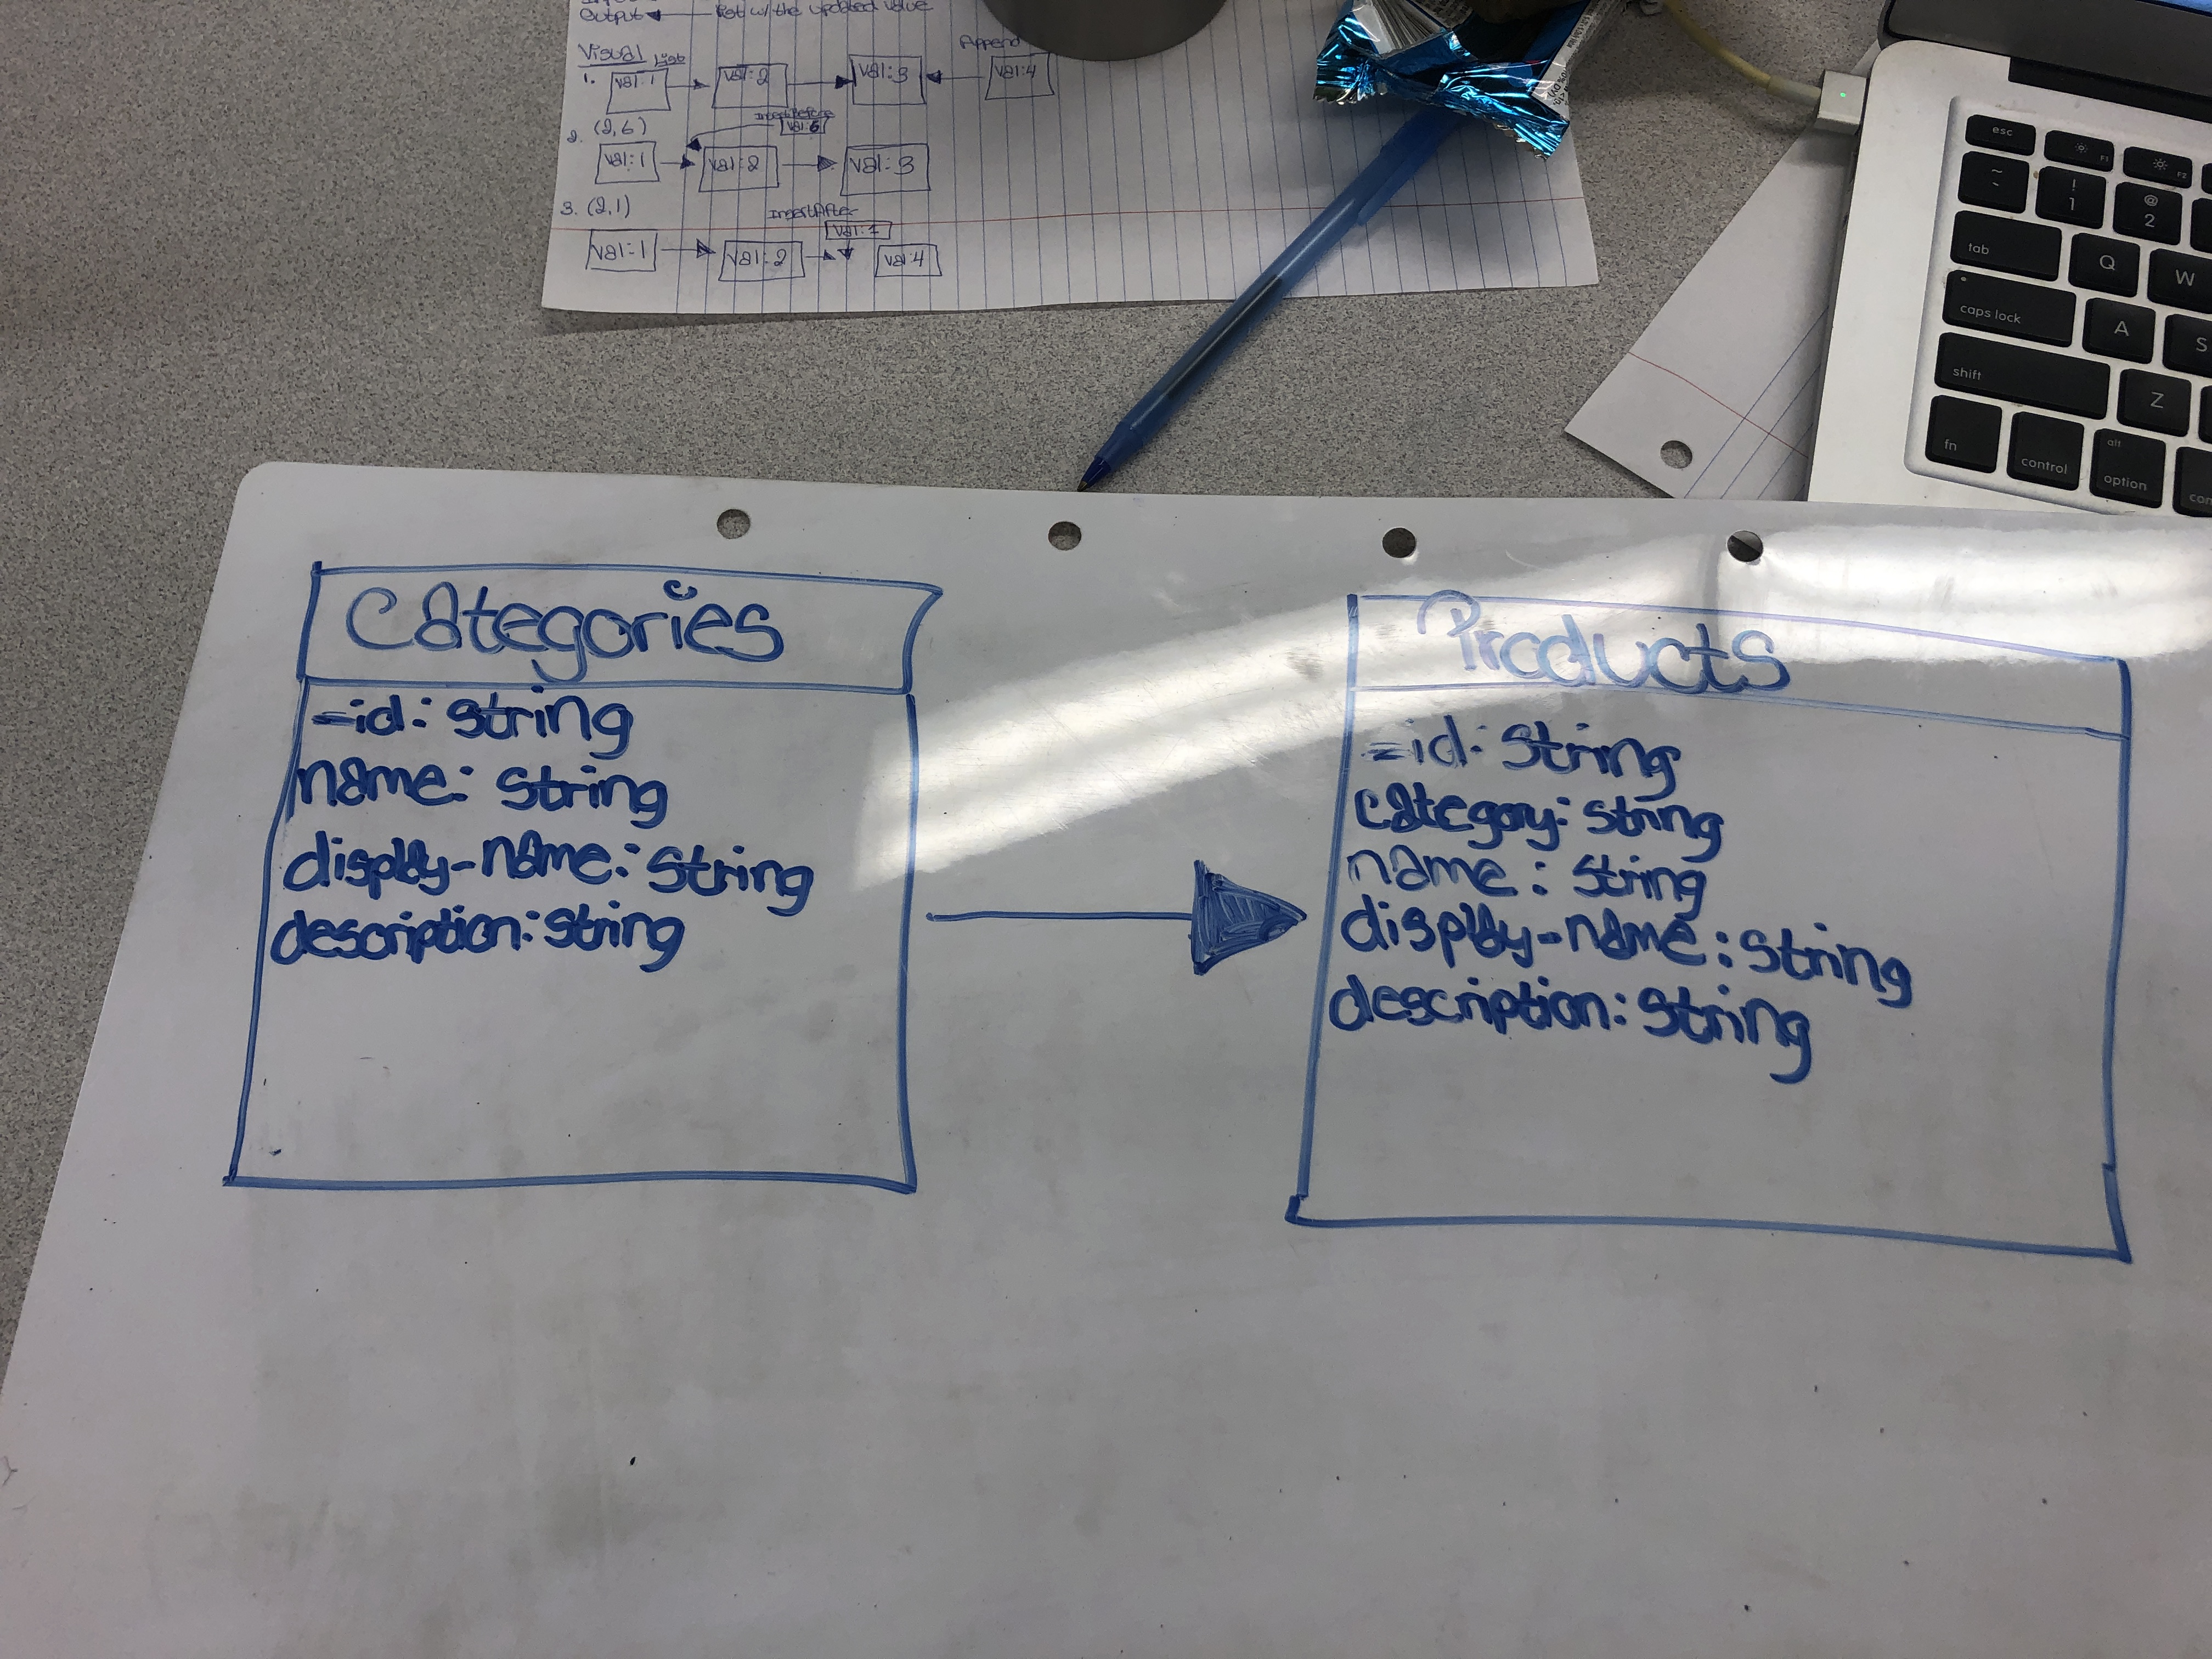 Categories
=id: string
name: string
display-name: string
description: string
Products
=id: string
category: string
name: string
display-name: string
description: string
Output
list w/ the updated value
Visual
Append
1.
val:1
val:2
val:3
val:4
2. (2,6)
val:6
val:1
val:2
val:3
3. (2,1)
insertAfter
val:1
val:1
val:2
val:4
esc
F1
F2
~
!
1
@
2
tab
Q
W
caps lock
A
S
shift
Z
fn
control
alt
option